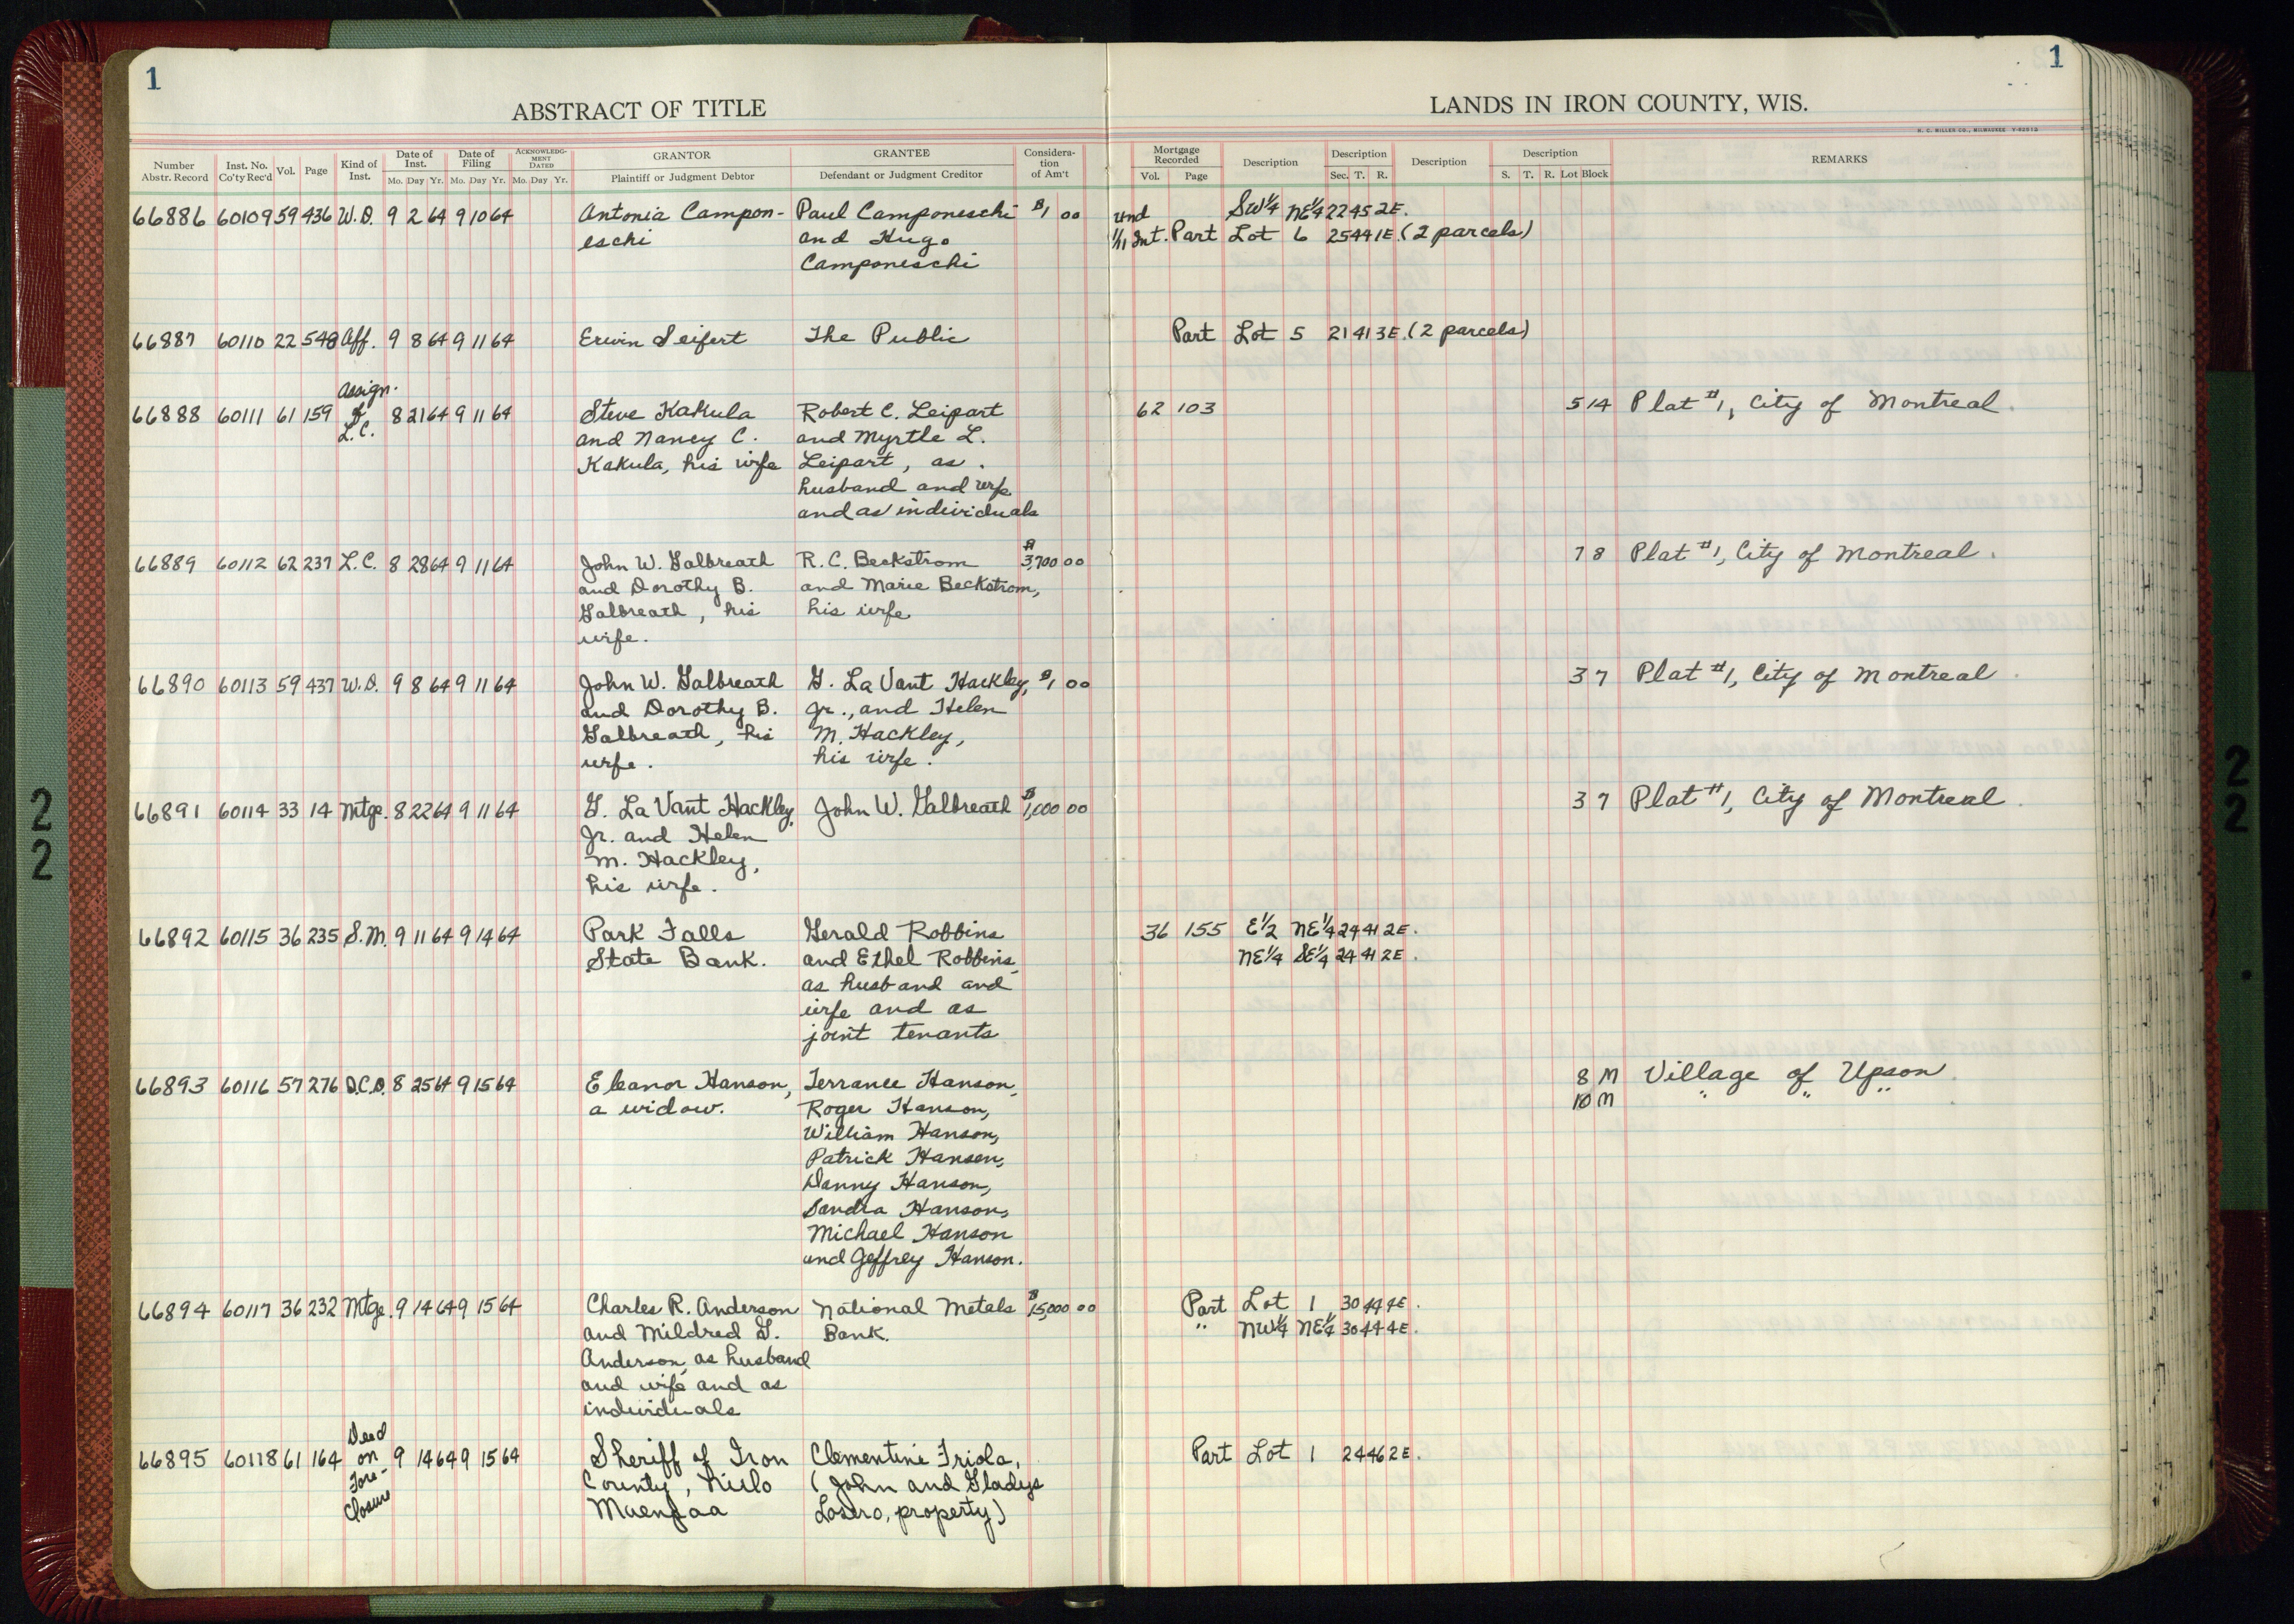 1
1
ABSTRACT OF TITLE
LANDS IN IRON COUNTY, WIS.
H. C. MILLER CO., MILWAUKEE
Number Abstr. Record
Inst. No. Co'ty Rec'd
Vol.
Page
Kind of Inst.
Date of Inst.
Mo. Day Yr.
Date of Filing
Mo. Day Yr.
ACKNOWLEDGMENT DATED
Mo. Day Yr.
GRANTOR
Plaintiff or Judgment Debtor
GRANTEE
Defendant or Judgment Creditor
Consideration of Am't
Mortgage Recorded
Vol. Page
Description
Description
Sec. T. R.
Description
Description
S. T. R. Lot Block
REMARKS
66886 60109 59 436 W.D. 9 2 64 9 10 64 Antonia Campon- Paul Camponeschi $1 00 und SW¼ NE¼ 22 45 2E.
eschi and Hugo 1/11 Int. Part Lot 6 25 44 1E. (2 parcels)
Camponeschi
66887 60110 22 548 Aff. 9 8 64 9 11 64 Erwin Seifert The Public Part Lot 5 21 41 3E. (2 parcels)
Assign.
66888 60111 61 159 of 8 21 64 9 11 64 Steve Kakula Robert C. Leipart 62 103 5 14 Plat #1, City of Montreal.
L.C. and Nancy C. and Myrtle L.
Kakula, his wife Leipart, as
husband and wife
and as individuals
66889 60112 62 237 L.C. 8 28 64 9 11 64 John W. Galbreath R. C. Beckstrom $3,700 00 7 8 Plat #1, City of Montreal.
and Dorothy B. and Marie Beckstrom,
Galbreath, his his wife
wife.
66890 60113 59 437 W.D. 9 8 64 9 11 64 John W. Galbreath G. La Vant Hackley, $1 00 3 7 Plat #1, City of Montreal
and Dorothy B. Jr., and Helen
Galbreath, his M. Hackley,
wife. his wife.
66891 60114 33 14 Mtge. 8 22 64 9 11 64 G. La Vant Hackley, John W. Galbreath $1,000 00 3 7 Plat #1, City of Montreal
Jr. and Helen
M. Hackley,
his wife.
66892 60115 36 235 S.M. 9 11 64 9 14 64 Park Falls Gerald Robbins 36 155 E½ NE¼ 24 41 2E.
State Bank. and Ethel Robbins, NE¼ SE¼ 24 41 2E.
as husband and
wife and as
joint tenants
66893 60116 57 276 Q.C.D. 8 25 64 9 15 64 Eleanor Hanson, Terrance Hanson, 8 M Village of Upson
a widow. Roger Hanson, 10 M " " "
William Hanson,
Patrick Hanson,
Danny Hanson,
Sandra Hanson,
Michael Hanson
and Geffrey Hanson.
66894 60117 36 232 Mtge. 9 14 64 9 15 64 Charles R. Anderson National Metals $15,000 00 Part Lot 1 30 44 4E.
and Mildred G. Bank. " NW¼ NE¼ 30 44 4E.
Anderson, as husband
and wife and as
individuals
Deed
66895 60118 61 164 on 9 14 64 9 15 64 Sheriff of Iron Clementine Friola, Part Lot 1 24 46 2E.
Fore- County, (John and Gladys
closure property)
2
2
2
2